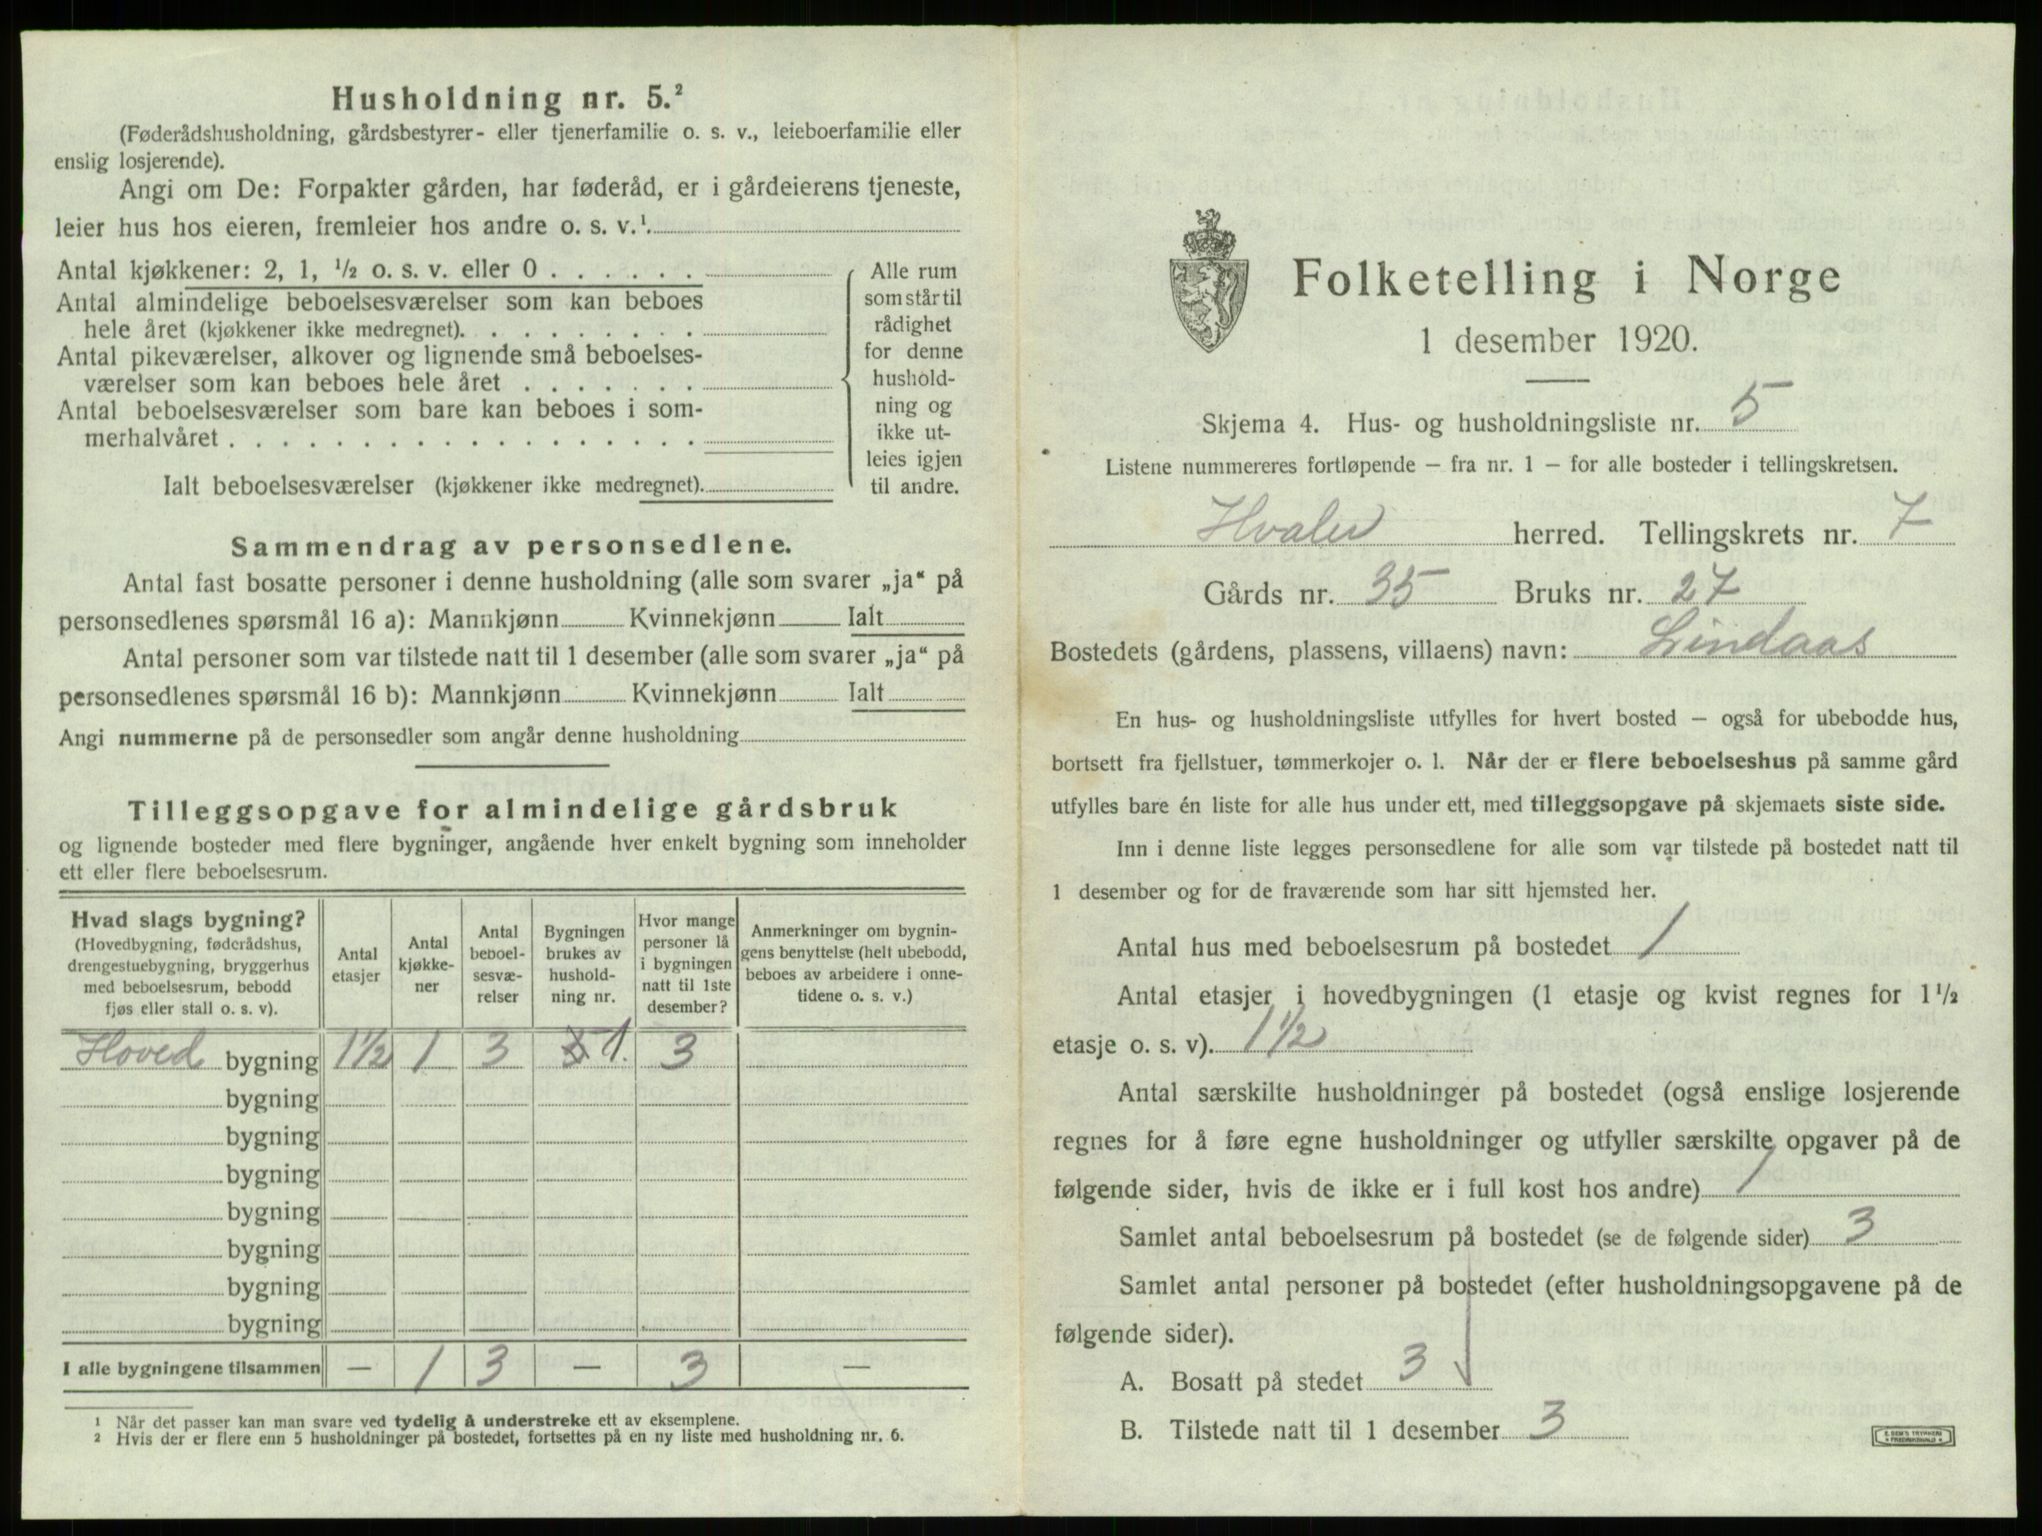 Husholdning nr. 5.²
(Føderådshusholdning, gårdsbestyrer- eller tjenerfamilie o. s. v., leieboerfamilie eller
enslig losjerende).
Angi om De: Forpakter gården, har føderåd, er i gårdeierens tjeneste,
leier hus hos eieren, fremleier hos andre o. s. v.¹.
Antal kjøkkener: 2, 1, ½ o. s. v. eller 0 . . . . . .
Antal almindelige beboelsesværelser som kan beboes
hele året (kjøkkener ikke medregnet). . . . . . . . .
Antal pikeværelser, alkover og lignende små beboelses-
værelser som kan beboes hele året . . . . . . .
Antal beboelsesværelser som bare kan beboes i som-
merhalvåret . . . . . . . . . . . . . . . . . .
Ialt beboelsesværelser (kjøkkener ikke medregnet).
Alle rum
som står til
rådighet
for denne
hushold-
ning og
ikke ut-
leies igjen
til andre.
Sammendrag av personsedlene.
Antal fast bosatte personer i denne husholdning (alle som svarer „ja“ på
personsedlenes spørsmål 16 a): Mannkjønn Kvinnekjønn Ialt
Antal personer som var tilstede natt til 1 desember (alle som svarer „ja“ på
personsedlenes spørsmål 16 b): Mannkjønn Kvinnekjønn Ialt
Angi nummerne på de personsedler som angår denne husholdning
Tilleggsopgave for almindelige gårdsbruk
og lignende bosteder med flere bygninger, angående hver enkelt bygning som inneholder
ett eller flere beboelsesrum.
Hvad slags bygning?
(Hovedbygning, føderådshus,
drengestuebygning, bryggerhus
med beboelsesrum, bebodd
fjøs eller stall o. s. v).
Antal
etasjer
Antal
kjøkke-
ner
Antal
beboel-
sesvæ-
relser
Bygningen
brukes av
hushold-
ning nr.
Hvor mange
personer lå
i bygningen
natt til 1ste
desember?
Anmerkninger om bygnin-
gens benyttelse (helt ubebodd,
beboes av arbeidere i onne-
tidene o. s. v.)
Hoved bygning 1½ 1 3 5 1. 3
bygning
bygning
bygning
bygning
bygning
bygning
bygning
I alle bygningene tilsammen — 1 3 — 3 —
¹ Når det passer kan man svare ved tydelig å understreke ett av eksemplene.
² Hvis der er flere enn 5 husholdninger på bostedet, fortsettes på en ny liste med husholdning nr. 6.
Folketelling i Norge
1 desember 1920.
Skjema 4. Hus- og husholdningsliste nr. 5
Listene nummereres fortløpende – fra nr. 1 – for alle bosteder i tellingskretsen.
Hvaler herred. Tellingskrets nr. 7
Gårds nr. 35 Bruks nr. 27
Bostedets (gårdens, plassens, villaens) navn: Lindaas
En hus- og husholdningsliste utfylles for hvert bosted – også for ubebodde hus,
bortsett fra fjellstuer, tømmerkojer o. l. Når der er flere beboelseshus på samme gård
utfylles bare én liste for alle hus under ett, med tilleggsopgave på skjemaets siste side.
Inn i denne liste legges personsedlene for alle som var tilstede på bostedet natt til
1 desember og for de fraværende som har sitt hjemsted her.
Antal hus med beboelsesrum på bostedet 1
Antal etasjer i hovedbygningen (1 etasje og kvist regnes for 1½
etasje o. s. v). 1½
Antal særskilte husholdninger på bostedet (også enslige losjerende
regnes for å føre egne husholdninger og utfyller særskilte opgaver på de
følgende sider, hvis de ikke er i full kost hos andre) 1
Samlet antal beboelsesrum på bostedet (se de følgende sider) 3
Samlet antal personer på bostedet (efter husholdningsopgavene på de
følgende sider).
A. Bosatt på stedet 3
B. Tilstede natt til 1 desember 3
E. SEM'S TRYKKERI
FREDRIKSHALD